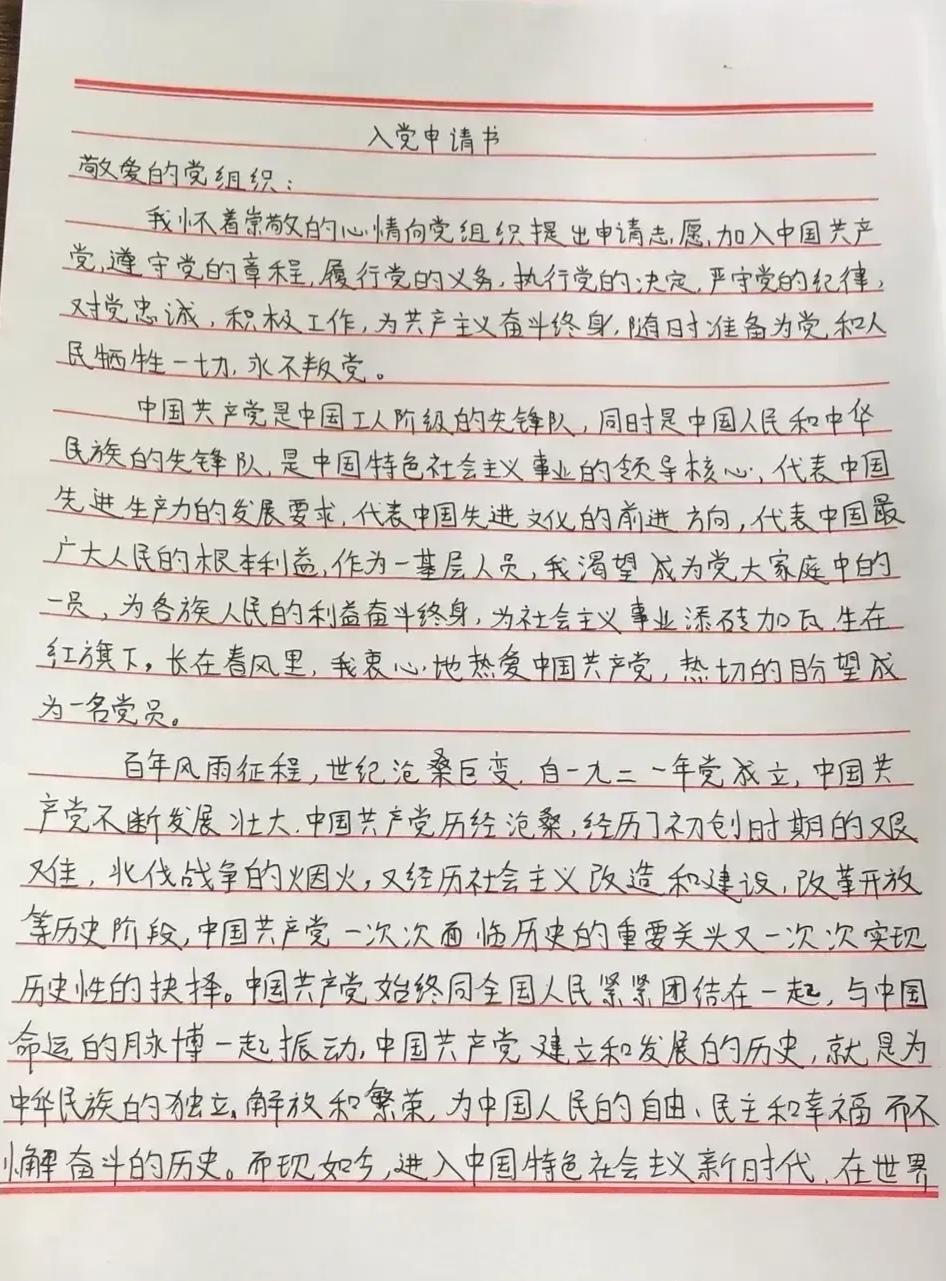 入党申请书
敬爱的党组织：
我怀着崇敬的心情向党组织提出申请志愿,加入中国共产
党,遵守党的章程,履行党的义务,执行党的决定,严守党的纪律,
对党忠诚,积极工作,为共产主义奋斗终身,随时准备为党,和人
民牺牲一切,永不叛党。
中国共产党是中国工人阶级的先锋队,同时是中国人民和中华
民族的先锋队,是中国特色社会主义事业的领导核心,代表中国
先进生产力的发展要求,代表中国先进文化的前进方向,代表中国最
广大人民的根本利益,作为一基层人员,我渴望成为党大家庭中的
一员,为各族人民的利益奋斗终身,为社会主义事业添砖加瓦,生在
红旗下。长在春风里,我衷心地热爱中国共产党,热切的盼望成
为一名党员。
百年风雨征程,世纪沧桑巨变,自一九二一年党成立,中国共
产党不断发展壮大,中国共产党历经沧桑,经历了初创时期的艰
难,北伐战争的烟火,又经历社会主义改造和建设,改革开放
等历史阶段,中国共产党一次次面临历史的重要关头又一次次实现
历史性的抉择。中国共产党始终同全国人民紧紧团结在一起,与中国
命运的脉博一起振动,中国共产党建立和发展的历史,就是为
中华民族的独立、解放和繁荣,为中国人民的自由、民主和幸福而不
懈奋斗的历史。而现如今,进入中国特色社会主义新时代,在世界